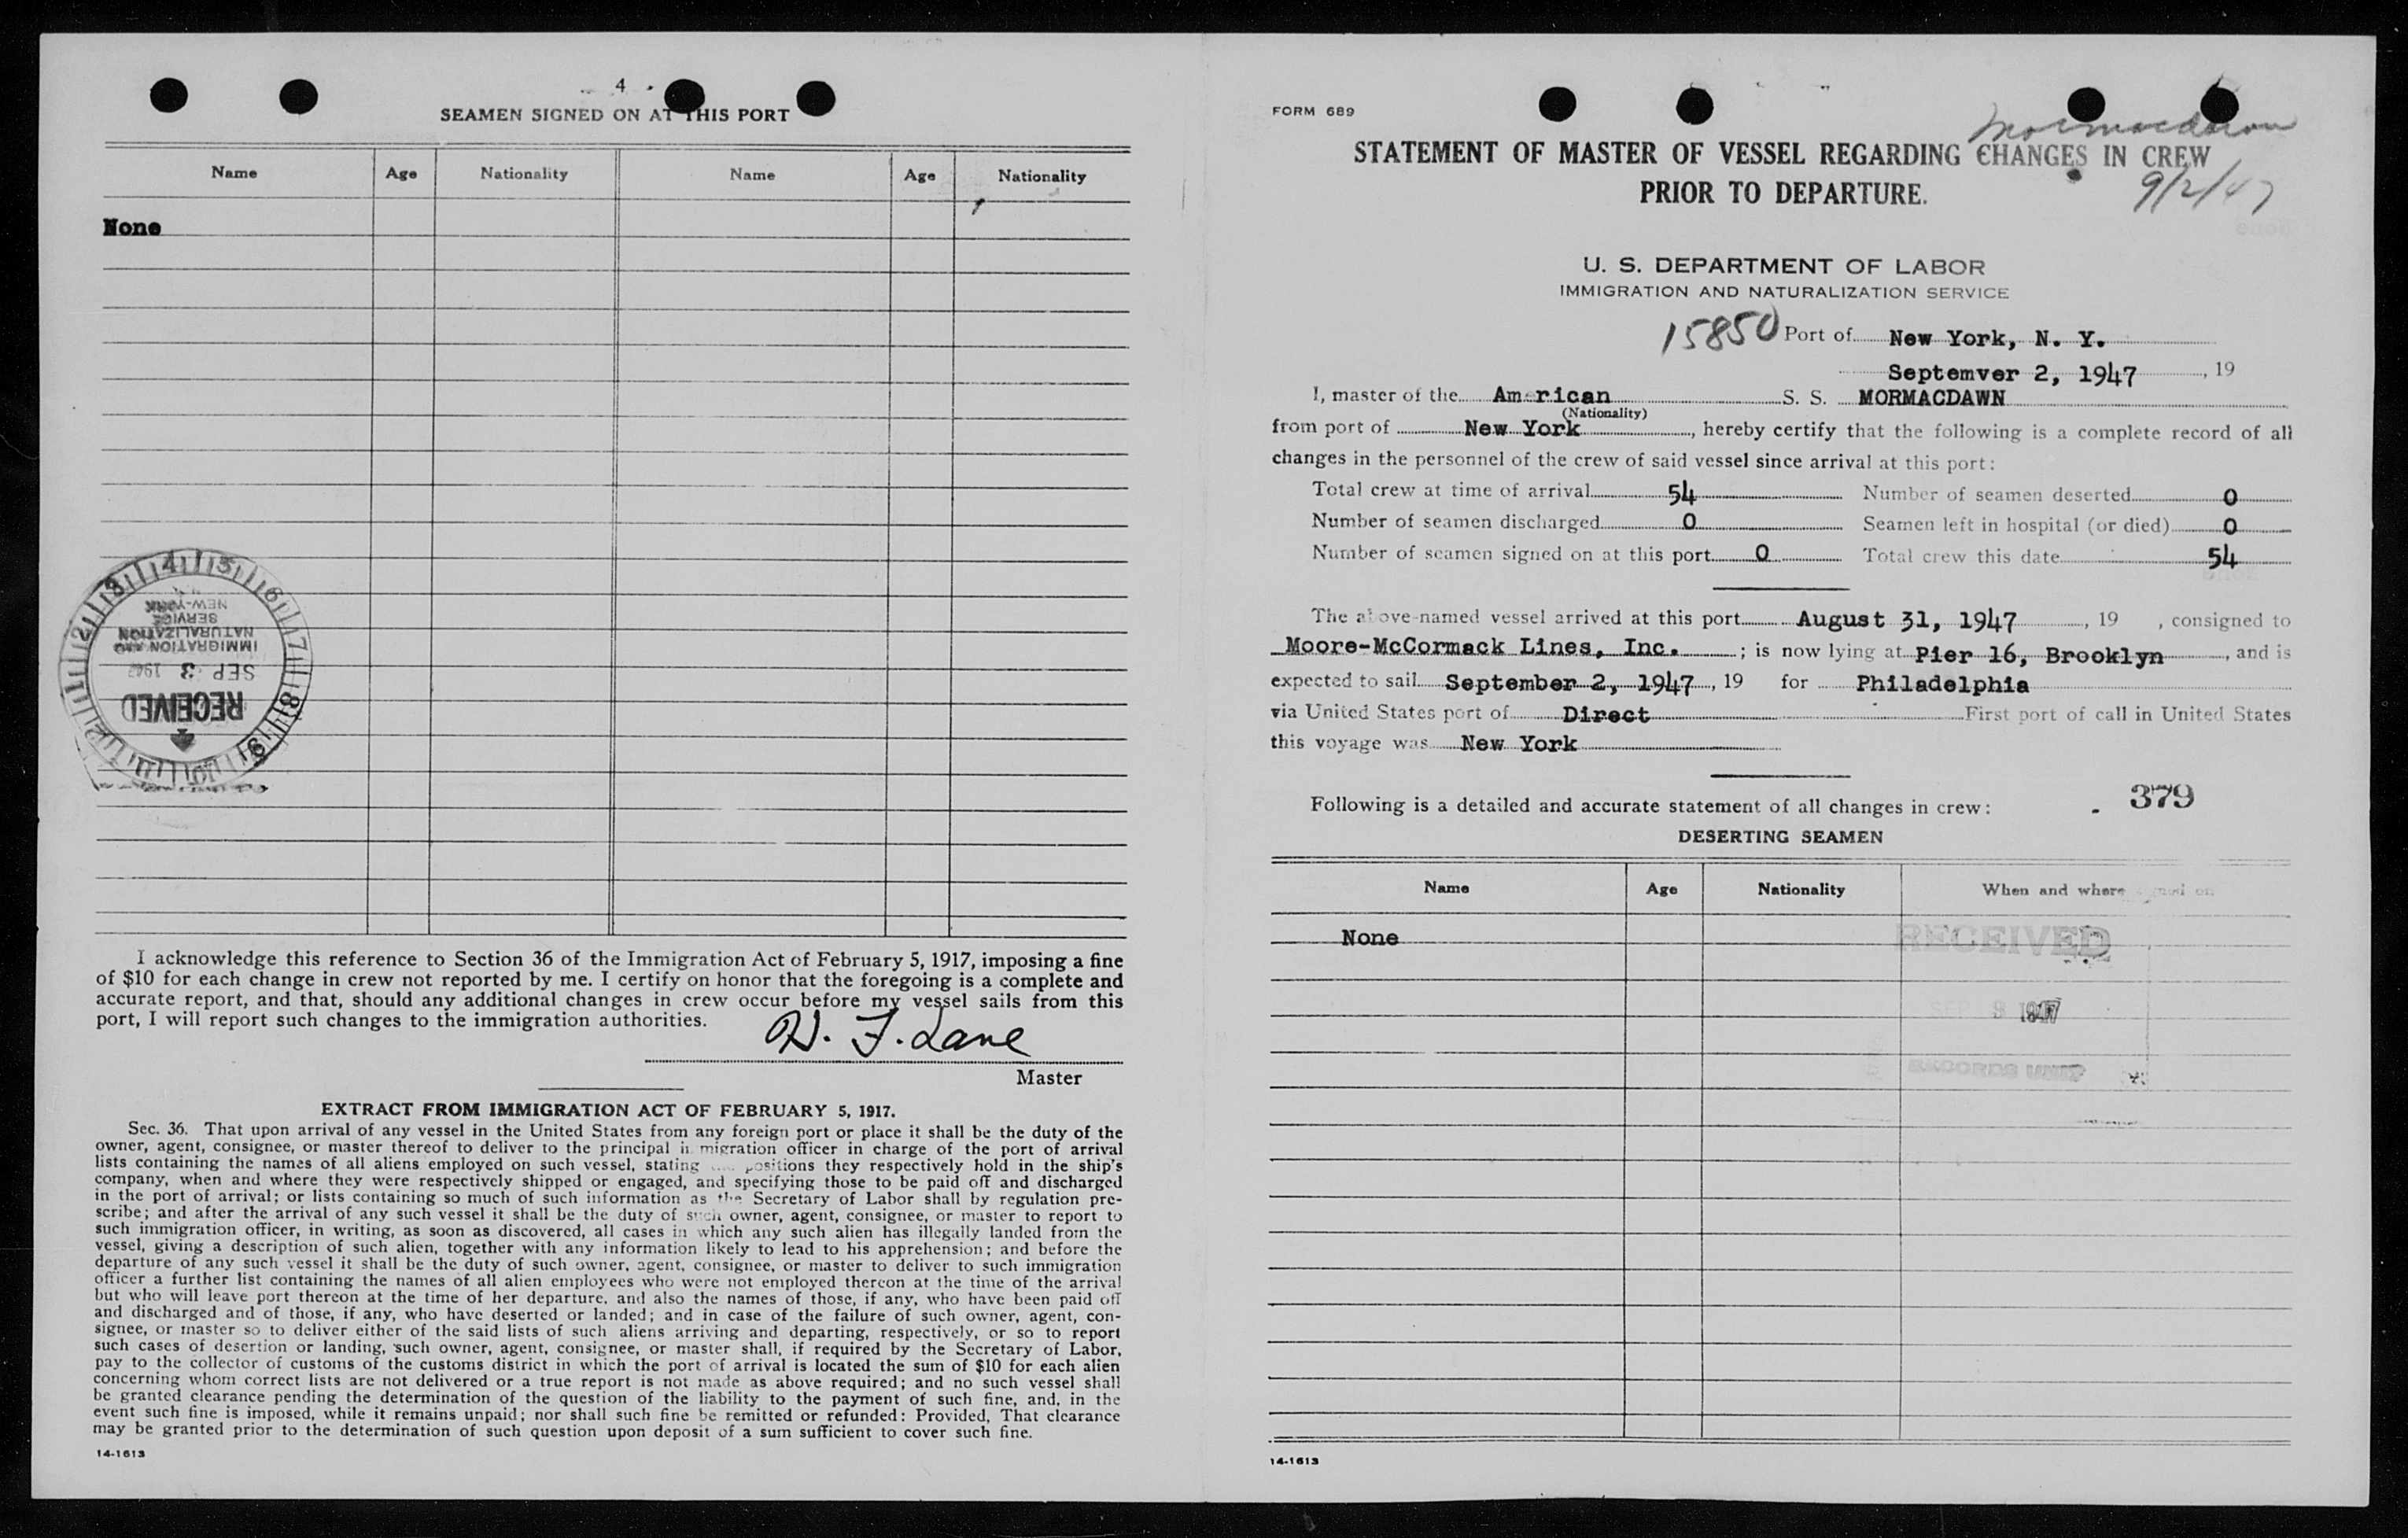 4
SEAMEN SIGNED ON AT THIS PORT
Name Age Nationality Name Age Nationality
None
NEW-YORK
SERVICE
NATURALIZATION
IMMIGRATION AND
SEP 3 1947
RECEIVED
I acknowledge this reference to Section 36 of the Immigration Act of February 5, 1917, imposing a fine
of $10 for each change in crew not reported by me. I certify on honor that the foregoing is a complete and
accurate report, and that, should any additional changes in crew occur before my vessel sails from this
port, I will report such changes to the immigration authorities.
H. F. Lane
Master
EXTRACT FROM IMMIGRATION ACT OF FEBRUARY 5, 1917.
Sec. 36. That upon arrival of any vessel in the United States from any foreign port or place it shall be the duty of the
owner, agent, consignee, or master thereof to deliver to the principal immigration officer in charge of the port of arrival
lists containing the names of all aliens employed on such vessel, stating the positions they respectively hold in the ship's
company, when and where they were respectively shipped or engaged, and specifying those to be paid off and discharged
in the port of arrival; or lists containing so much of such information as the Secretary of Labor shall by regulation pre-
scribe; and after the arrival of any such vessel it shall be the duty of such owner, agent, consignee, or master to report to
such immigration officer, in writing, as soon as discovered, all cases in which any such alien has illegally landed from the
vessel, giving a description of such alien, together with any information likely to lead to his apprehension; and before the
departure of any such vessel it shall be the duty of such owner, agent, consignee, or master to deliver to such immigration
officer a further list containing the names of all alien employees who were not employed thereon at the time of the arrival
but who will leave port thereon at the time of her departure, and also the names of those, if any, who have been paid off
and discharged and of those, if any, who have deserted or landed; and in case of the failure of such owner, agent, con-
signee, or master so to deliver either of the said lists of such aliens arriving and departing, respectively, or so to report
such cases of desertion or landing, such owner, agent, consignee, or master shall, if required by the Secretary of Labor,
pay to the collector of customs of the customs district in which the port of arrival is located the sum of $10 for each alien
concerning whom correct lists are not delivered or a true report is not made as above required; and no such vessel shall
be granted clearance pending the determination of the question of the liability to the payment of such fine, and, in the
event such fine is imposed, while it remains unpaid; nor shall such fine be remitted or refunded: Provided, That clearance
may be granted prior to the determination of such question upon deposit of a sum sufficient to cover such fine.
14-1613
FORM 689
Mormacdawn
STATEMENT OF MASTER OF VESSEL REGARDING CHANGES IN CREW
PRIOR TO DEPARTURE.
9/2/47
U. S. DEPARTMENT OF LABOR
IMMIGRATION AND NATURALIZATION SERVICE
15850 Port of New York, N. Y.
Septemver 2, 1947, 19
I, master of the American S. S. MORMACDAWN
(Nationality)
from port of New York, hereby certify that the following is a complete record of all
changes in the personnel of the crew of said vessel since arrival at this port:
Total crew at time of arrival 54 Number of seamen deserted 0
Number of seamen discharged 0 Seamen left in hospital (or died) 0
Number of seamen signed on at this port 0 Total crew this date 54
The above-named vessel arrived at this port August 31, 1947, 19 , consigned to
Moore-McCormack Lines, Inc. ; is now lying at Pier 16, Brooklyn, and is
expected to sail September 2, 1947, 19 for Philadelphia
via United States port of Direct First port of call in United States
this voyage was New York
Following is a detailed and accurate statement of all changes in crew:
379
DESERTING SEAMEN
Name Age Nationality When and where signed on
None
RECEIVED
SEP 3 1947
RECORDS UNIT
14-1613